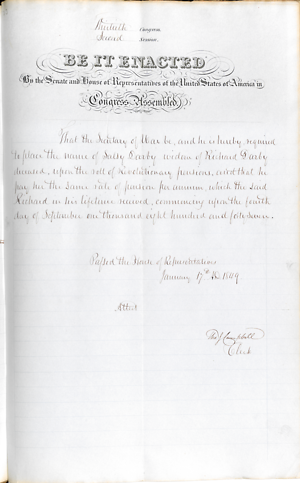 Thirtieth Congress.
Second Session.
BE IT ENACTED
By the Senate and House of Representatives of the United States of America in
Congress Assembled,
That the Secretary of War be, and he is hereby required
to place the name of Sally Darby widow of Richard Darby
deceased, upon the roll of revolutionary pensions, and that he
pay her the same rate of pension per annum, which the said
Richard in his lifetime received, commencing upon the fourth
day of September one thousand eight hundred and forty
Passed the House of Representatives
January 17th 1849
Attest
Campbell
Clerk